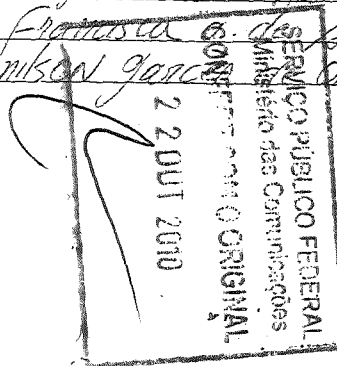 Francisca de
nilson garcia
SERVIÇO PÚBLICO FEDERAL
Ministério das Comunicações
CONFERE COM O ORIGINAL
22 OUT 2010